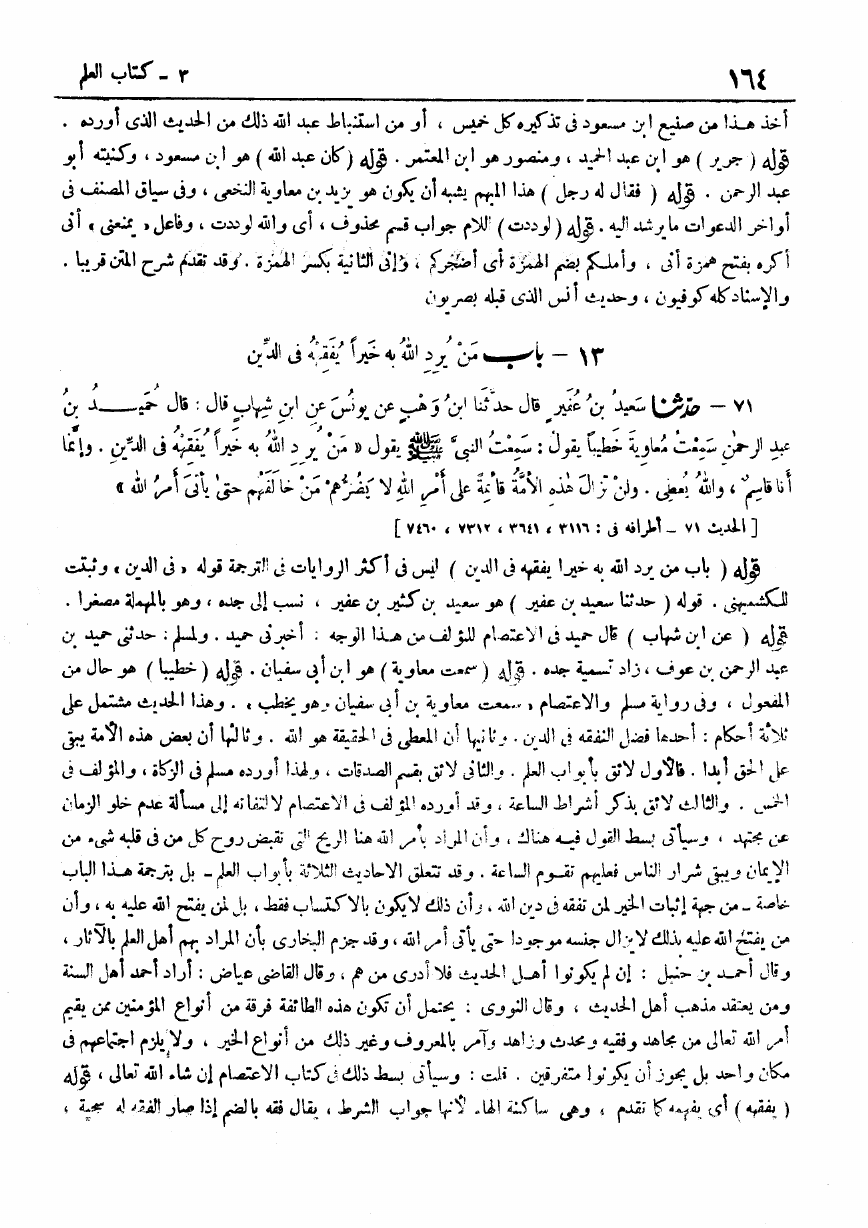 ١٦٤
٣ - كتاب العلم
أخذ هـذا من صنيع ابن مسعود فى تذكيره كل خميس ، أو من استنباط عبد الله ذلك من الحديث الذى أورده .
قوله ( جرير ) هو ابن عبد الحميد ، ومنصور هو ابن المعتمر . قوله ( كان عبد الله ) هو ابن مسعود ، وكنيته أبو
عبد الرحمن . قوله ( فقال له رجل ) هذا المبهم يشبه أن يكون هو يزيد بن معاوية النخعى ، وفى سياق المصنف فى
أواخر الدعوات ما يرشد اليه . قوله ( لوددت ) اللام جواب قسم محذوف ، أى والله لوددت ، وفاعل « يمنعنى » أنى
أكره بفتح همزة أنى ، وأملـكم بضم الهمزة أى أضجركم ، وإنى الثانية بكسر الهمزة . وقد تقدم شرح المتن قريبا .
والإسناد كله كوفيون ، وحديث أنس الذى قبله بصريون
١٣ - باب مَنْ يُرِدِ اللهُ به خَيراً يُفَقِّهْهُ فى الدِّين
٧١ - حدثنا سَعيدُ بنُ عُفَيرٍ قال حدثَنا ابنُ وَهْبٍ عن يونُسَ عنِ ابنِ شِهابٍ قال : قال حُمَيـدُ بنُ
عبدِ الرحمنِ سَمِعْتُ مُعاوِيةَ خَطِيباً يقولُ : سَمِعْتُ النبىَّ ﷺ يقول « مَنْ يُرِدِ اللهُ به خَيراً يُفَقِّهْهُ فى الدِّينِ . وإنَّما
أنا قاسِمٌ ، واللهُ يُعطِى . ولَنْ تزالَ هٰذِهِ الأمَّةُ قائمةً على أَمْرِ اللهِ لا يَضُرُّهمْ مَنْ خالَفَهُم حتىٰ يأتىَ أَمرُ الله »
[ الحديث ٧١ - أطرافه فى : ٣١١٦ ، ٣٦٤١ ، ٧٣١٢ ، ٧٤٦٠ ]
قوله ( باب من يرد الله به خيرا يفقهه فى الدين ) ليس فى أكثر الروايات فى الترجمة قوله « فى الدين » وثبتت
للكشميهنى . قوله ( حدثنا سعيد بن عفير ) هو سعيد بن كثير بن عفير ، نسب إلى جده ، وهو بالمهملة مصغرا .
قوله ( عن ابن شهاب ) قال حميد فى الاعتصام للؤلف من هـذا الوجه : أخبرنى حميد . ولمسلم : حدثنى حميد بن
عبد الرحمن بن عوف ، زاد تسمية جده . قوله ( سمعت معاوية ) هو ابن أبى سفيان . قوله ( خطيبا ) هو حال من
المفعول ، وفى رواية مسلم والاعتصام « سمعت معاوية بن أبى سفيان وهو يخطب » . وهذا الحديث مشتمل على
ثلاثة أحكام : أحدها فضل التفقه فى الدين . وثانيها أن المعطى فى الحقيقة هو الله . وثالثها أن بعض هذه الأمة يبقى
على الحق أبدا . فالأول لائق بأبواب العلم . والثانى لائق بقسم الصدقات ، ولهذا أورده مسلم فى الزكاة ، والمؤلف فى
الخمس . والثالث لائق بذكر أشراط الساعة ، وقد أورده المؤلف فى الاعتصام لالتفاته إلى مسألة عدم خلو الزمان
عن مجتهد ، وسيأتى بسط القول فيـه هناك ، وأن المراد بأمر الله هنا الريح التى تقبض روح كل من فى قلبه شىء من
الإيمان ويبقى شرار الناس فعليهم تقـوم الساعة . وقد تتعلق الاحاديث الثلاثة بأبواب العلم - بل بترجمة هـذا الباب
خاصة - من جهة إثبات الخير لمن تفقه فى دين الله ، وأن ذلك لا يكون بالاكتساب فقط ، بل لمن يفتح الله عليه به ، وأن
من يفتح الله عليه بذلك لا يزال جنسه موجودا حتى يأتى أمر الله ، وقد جزم البخارى بأن المراد بهم أهل العلم بالآثار ،
وقال أحمـد بن حنبل : إن لم يكونوا أهـل الحديث فلا أدرى من هم ، وقال القاضى عياض : أراد أحمد أهل السنة
ومن يعتقد مذهب أهل الحديث ، وقال النووى : يحتمل أن تكون هذه الطائفة فرقة من أنواع المؤمنين ممن يقيم
أمر الله تعالى من مجاهد وفقيه ومحدث وزاهد وآمر بالمعروف وغير ذلك من أنواع الخير ، ولا يلزم اجتماعهم فى
مكان واحد بل يجوز أن يكونوا متفرقين . قلت : وسيأتى بسط ذلك فى كتاب الاعتصام إن شاء الله تعالى ، قوله
( يفقهه ) أى يفهمه كما تقدم ، وهى ساكنة الهاء لأنها جواب الشرط ، يقال فقه بالضم إذا صار الفقه له سجية ،